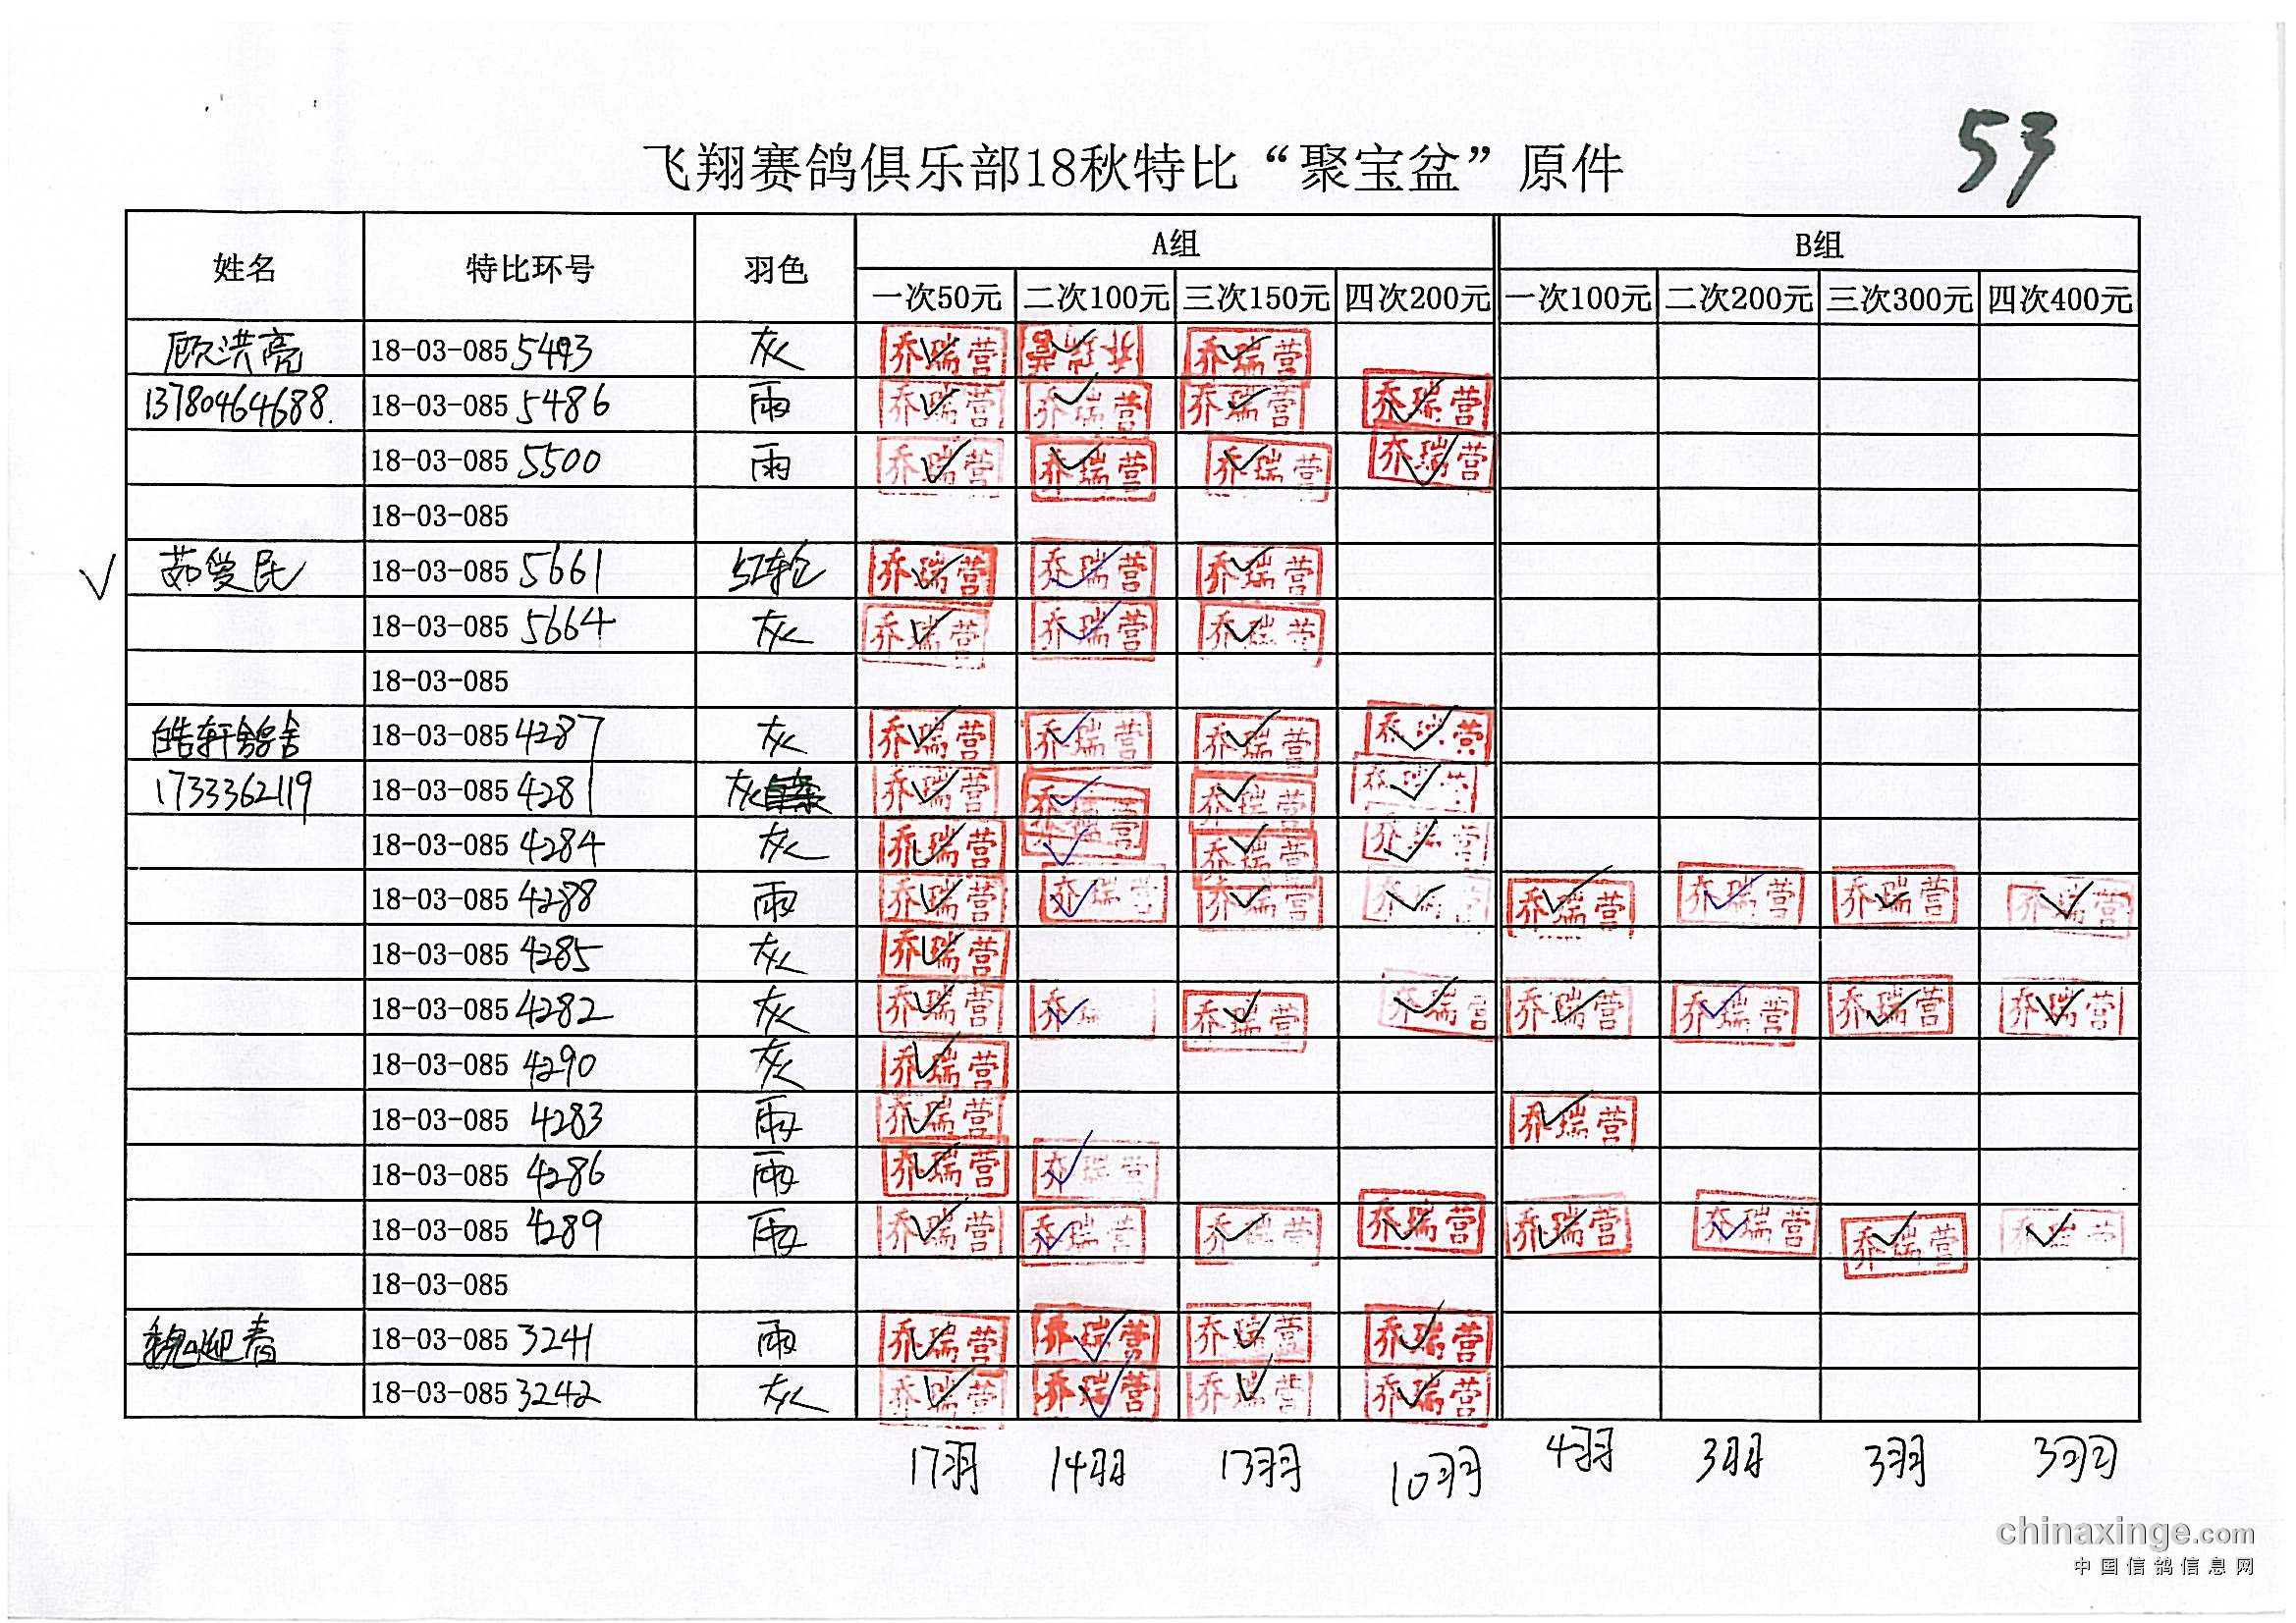 53
飞翔赛鸽俱乐部18秋特比“聚宝盆”原件
姓名 特比环号 羽色 A组 B组
一次50元 二次100元 三次150元 四次200元 一次100元 二次200元 三次300元 四次400元
顾洪亮 18-03-085 5493 灰 乔瑞营 乔瑞营 乔瑞营
13780464688. 18-03-085 5486 雨 乔瑞营 乔瑞营 乔瑞营 乔瑞营
18-03-085 5500 雨 乔瑞营 乔瑞营 乔瑞营 乔瑞营
18-03-085
√ 茹爱民 18-03-085 5661 红轮 乔瑞营 乔瑞营 乔瑞营
18-03-085 5664 灰 乔瑞营 乔瑞营 乔瑞营
18-03-085
皓轩鸽舍 18-03-085 4287 灰 乔瑞营 乔瑞营 乔瑞营 乔瑞营
1733362119 18-03-085 4281 灰 乔瑞营 乔瑞营 乔瑞营 乔瑞营
18-03-085 4284 灰 乔瑞营 乔瑞营 乔瑞营 乔瑞营
18-03-085 4288 雨 乔瑞营 乔瑞营 乔瑞营 乔瑞营 乔瑞营 乔瑞营 乔瑞营 乔瑞营
18-03-085 4285 灰 乔瑞营
18-03-085 4282 灰 乔瑞营 乔瑞 乔瑞营 乔瑞营 乔瑞营 乔瑞营 乔瑞营 乔瑞营
18-03-085 4290 灰 乔瑞营
18-03-085 4283 雨 乔瑞营 乔瑞营
18-03-085 4286 雨 乔瑞营 乔瑞营
18-03-085 4289 雨 乔瑞营 乔瑞营 乔瑞营 乔瑞营 乔瑞营 乔瑞营 乔瑞营 乔瑞营
18-03-085
魏迎春 18-03-085 3241 雨 乔瑞营 乔瑞营 乔瑞营 乔瑞营
18-03-085 3242 灰 乔瑞营 乔瑞营 乔瑞营 乔瑞营
17羽 14羽 13羽 10羽 4羽 3羽 3羽 3羽
chinaxinge.com
中国信鸽信息网